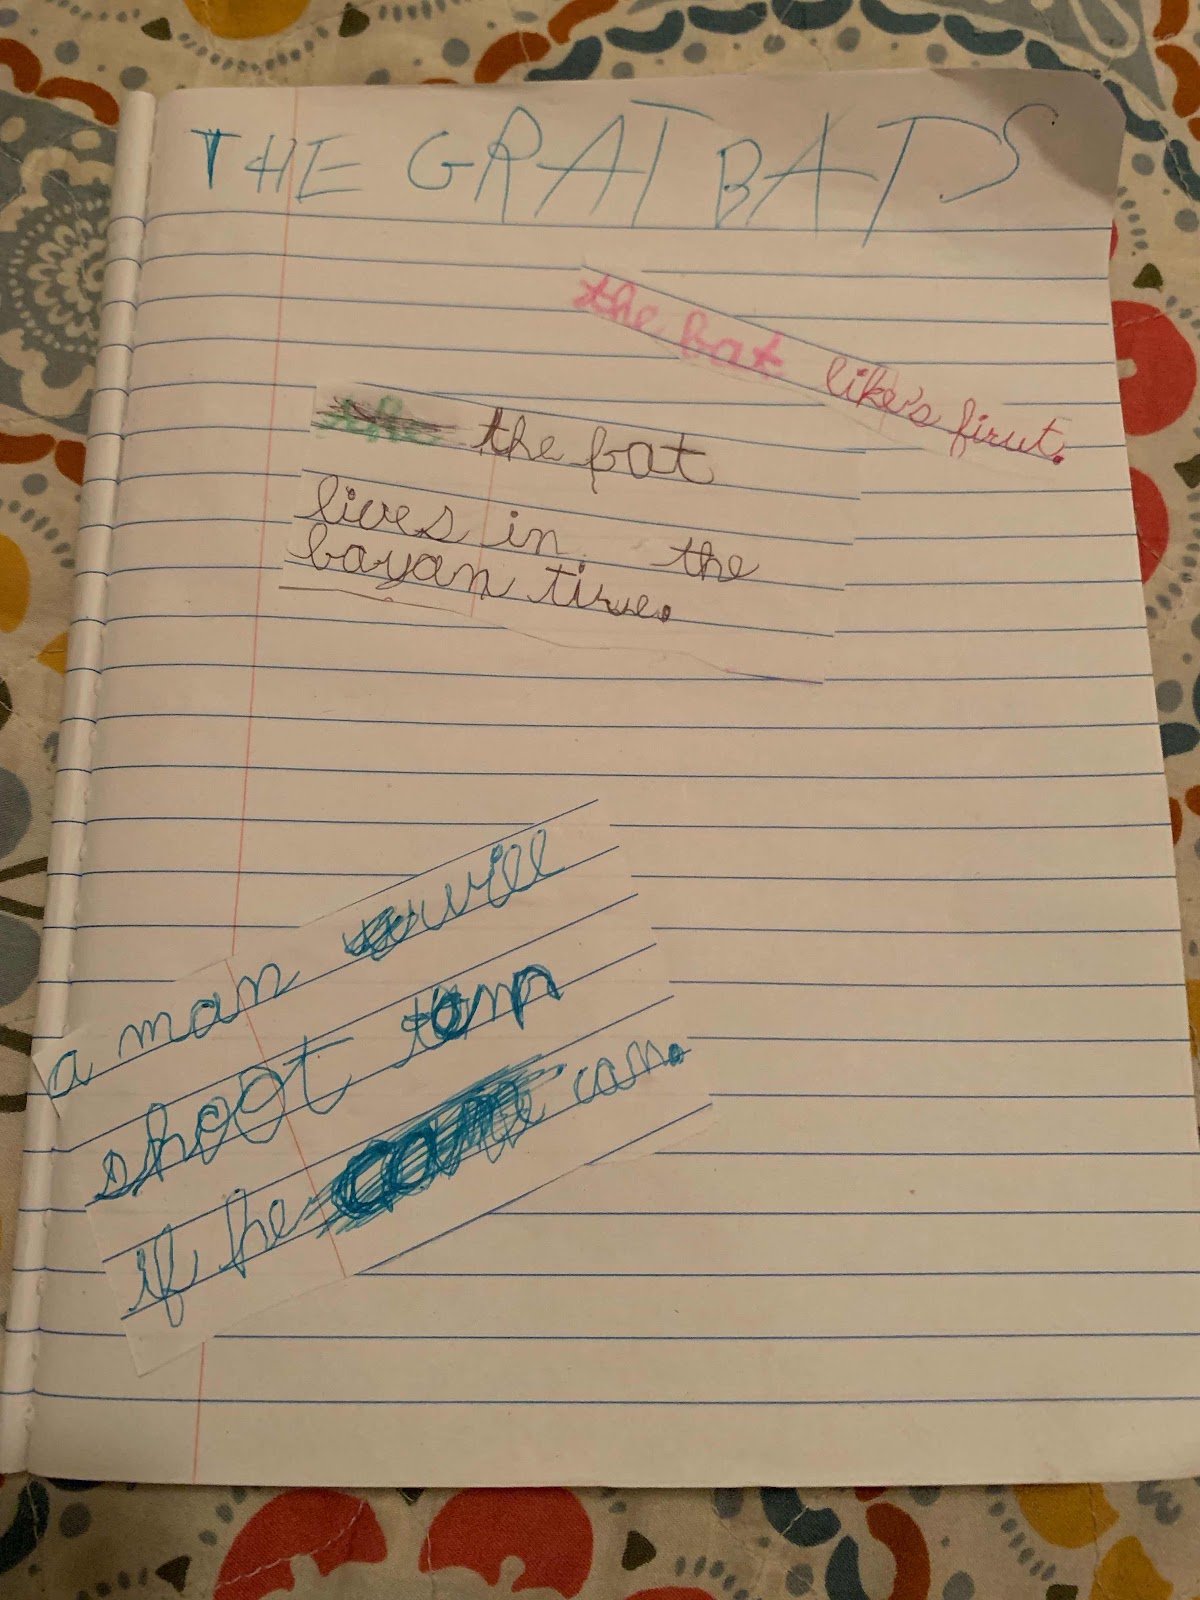 THE GRAT BATS
the bat like's firut.
the bat
lives in the
bayan tire.
a man will
shoot tem
if he can.